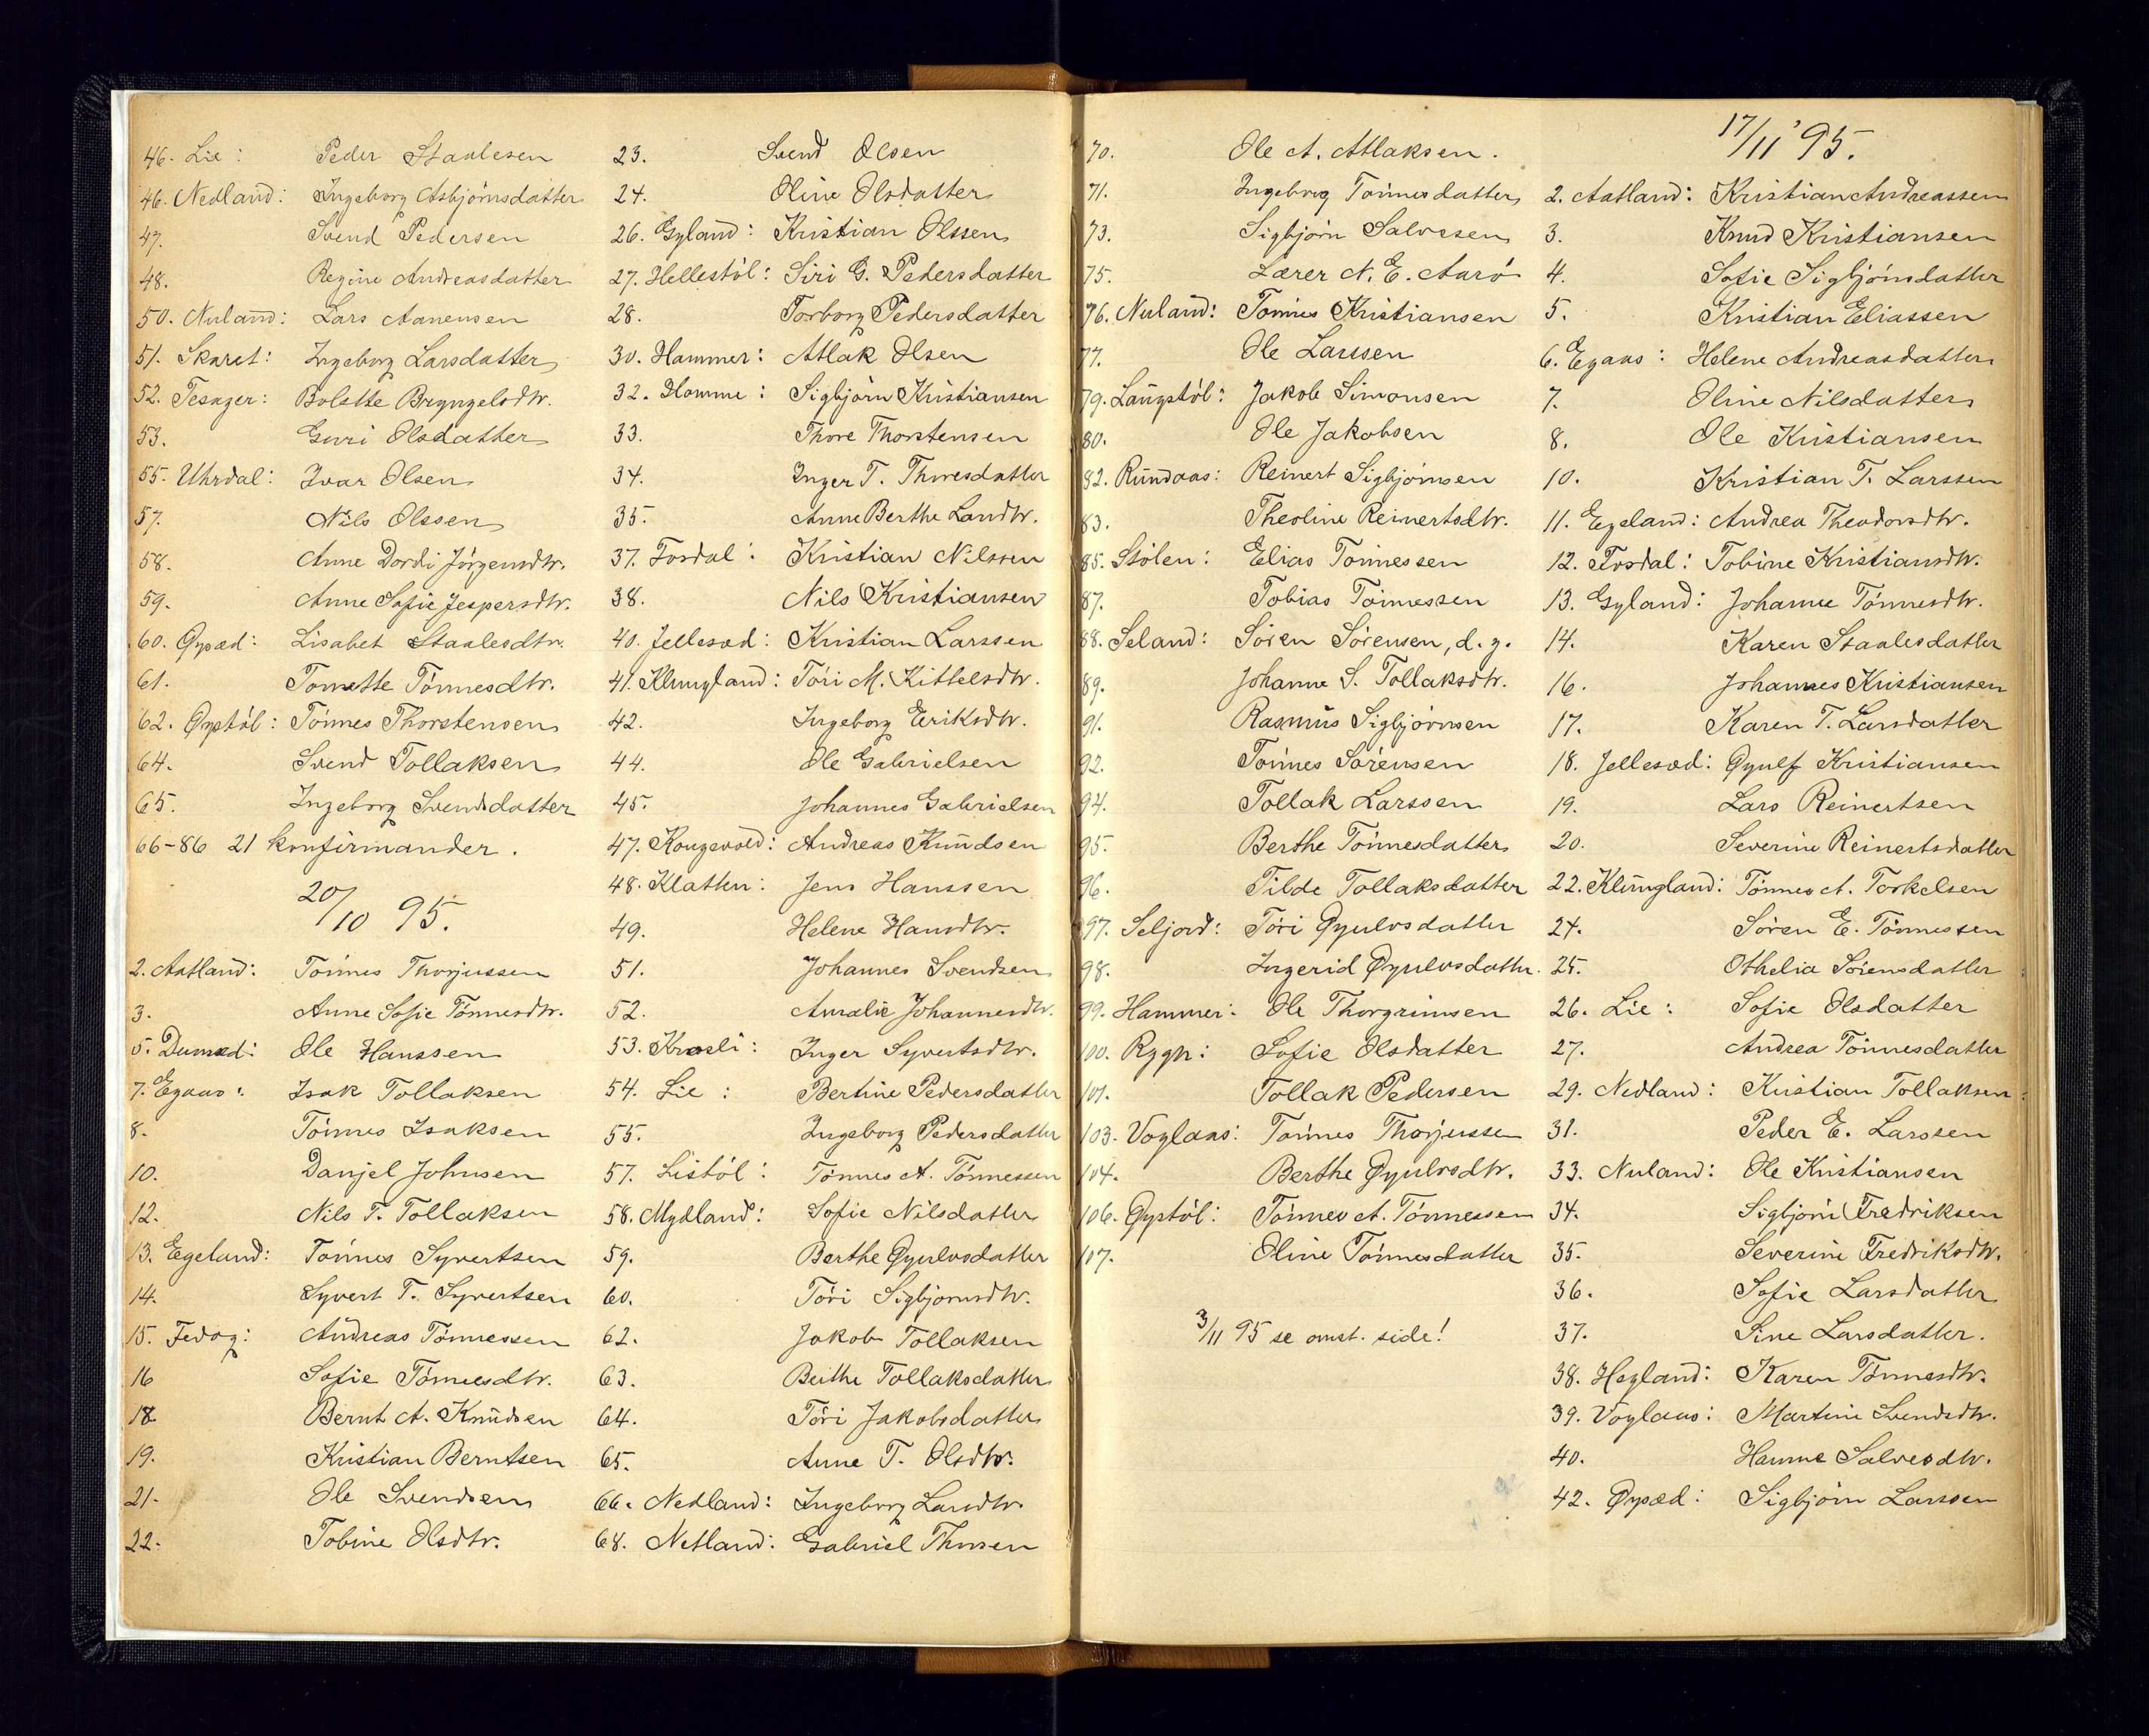 46. Lie: Peder Staalesen
46. Nedland: Ingeborg Asbjörnsdatter
47. Svend Pedersen
48. Regine Andreasdatter
50. Nuland: Lars Aanensen
51. Skaret: Ingeborg Larsdatter
52. Tesager: Bolette Bryngelsdtr.
53. Guri Olsdatter
55. Uhrdal: Ivar Olsen
57. Nils Olssen
58. Anne Dordi Jörgensdtr.
59. Anne Sofie Jespersdtr.
60. Øysæd: Lisabet Staalesdtr.
61. Tomette Tönnesdtr.
62. Øystöl: Tönnes Thorstensen
64. Svend Tollaksen
65. Ingeborg Svendsdatter
66-86 21 konfirmander.
20/10 95.
2. Aatland: Tönnes Thorjussen
3. Anne Sofie Tönnesdtr.
5. Dunsæd: Ole Hanssen
7. Egaas: Isak Tollaksen
8. Tönnes Isaksen
10. Danjel Johnsen
12. Nils T. Tollaksen
13. Egeland: Tönnes Syvertsen
14. Syvert T. Syvertsen
15. Fedog: Andreas Tönnessen
16 Sofie Tönnesdtr.
18 Bernt A. Knudsen
19. Kristian Berntsen
21. Ole Svendsen
22. Tobine Olsdtr.
23. Svend Olsen
24. Oline Olsdatter
26. Gyland: Kristian Olssen
27. Hellestöl: Siri G. Pedersdatter
28. Torborg Pedersdatter
30. Hammer: Atlak Olsen
32. Homme: Sigbjörn Kristiansen
33. Thore Thorstensen
34. Inger T. Thoresdatter
35. Anne Berthe Larsdtr.
37. Fosdal: Kristian Nilssen
38. Nils Kristiansen
40. Jellesæd: Kristian Larssen
41. Klungland: Töri M. Kittelsdtr.
42. Ingeborg Eriksdtr.
44. Ole Gabrielsen
45. Johannes Gabrielsen
47. Kongevold: Andreas Knudsen
48. Klatten: Jens Hanssen
49. Helene Hansdtr.
51. Johannes Svendsen
52. Amalie Johannesdtr.
53. Kraali: Inger Syvertsdtr.
54. Lie: Bertine Pedersdatter
55. Ingeborg Pedersdatter
57. Listöl: Tönnes A. Tönnessen
58. Mydland: Sofie Nilsdatter
59. Berthe Øyulvsdatter
60. Töri Sigbjörnsdtr.
62. Jakob Tollaksen
63. Berthe Tollaksdatter
64. Töri Jakobsdatter
65. Anne T. Olsdtr.
66. Nedland: Ingeborg Larsdtr.
68. Netland: Gabriel Thorsen
70. Ole A. Atlaksen.
71. Ingeborg Tönnesdatter
73. Sigbjörn Salvesen
75. Lærer N. E. Aarö
76. Nuland: Tönnes Kristiansen
77. Ole Larssen
79. Langstöl: Jakob Simonsen
80. Ole Jakobsen
82. Rundaas: Reinert Sigbjörnsen
83. Theoline Reinertsdtr.
85. Stölen: Elias Tönnessen
87. Tobias Tönnessen
88. Seland: Sören Sörensen, d. y.
89. Johanne S. Tollaksdtr.
91. Rasmus Sigbjörnsen
92. Tönnes Sörensen
94. Tollak Larssen
95. Berthe Tönnesdatter
96. Tilde Tollaksdatter
97. Seljord: Töri Øyulvsdatter
98. Ingerid Øyulvsdatter.
99. Hammer: Ole Thorgrimsen
100. Rygh: Sofie Olsdatter
101. Tollak Pedersen
103. Voglaas: Tönnes Thorjussen
104. Berthe Øyulvsdtr.
106. Øystöl: Tönnes A. Tönnessen
107. Oline Tönnesdatter
3/11 95 se omst. side!
17/11 '95.
2. Aatland: Kristian Andreassen
3. Knud Kristiansen
4. Sofie Sigbjörnsdatter
5. Kristian Eliassen
6. Egaas: Helene Andreasdatter
7. Oline Nilsdatter
8. Ole Kristiansen
10. Kristian T. Larssen
11. Egeland: Andrea Theodorsdtr.
12. Fosdal: Tobine Kristiansdtr.
13. Gyland: Johanne Tönnesdtr.
14. Karen Staalesdatter
16. Johannes Kristiansen
17. Karen T. Larsdatter
18. Jellesæd: Øyulf Kristiansen
19. Lars Reinertsen
20. Severine Reinertsdatter
22. Klungland: Tönnes A. Torkelsen
24. Sören E. Tönnessen
25. Othelia Sörensdatter
26. Lie: Sofie Olsdatter
27. Andrea Tönnesdatter
29. Nedland: Kristian Tollaksen
31. Peder E. Larssen
33. Nuland: Ole Kristiansen
34. Sigbjörn Fredriksen
35. Severine Fredriksdtr.
36. Sofie Larsdatter
37. Sine Larsdatter.
38. Hegland: Karen Tönnesdtr.
39. Voglaas: Martine Svendsdtr.
40. Hanne Salvesdtr.
42. Øysæd: Sigbjörn Larssen